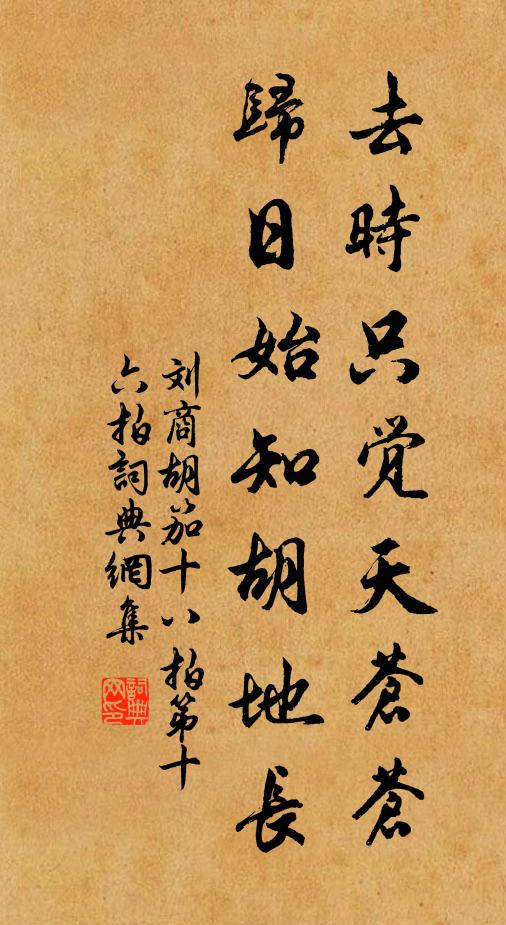 去時只覺天蒼蒼
歸日始知胡地長
刘商胡笳十八拍第十
六拍詞典網集
詞典網印